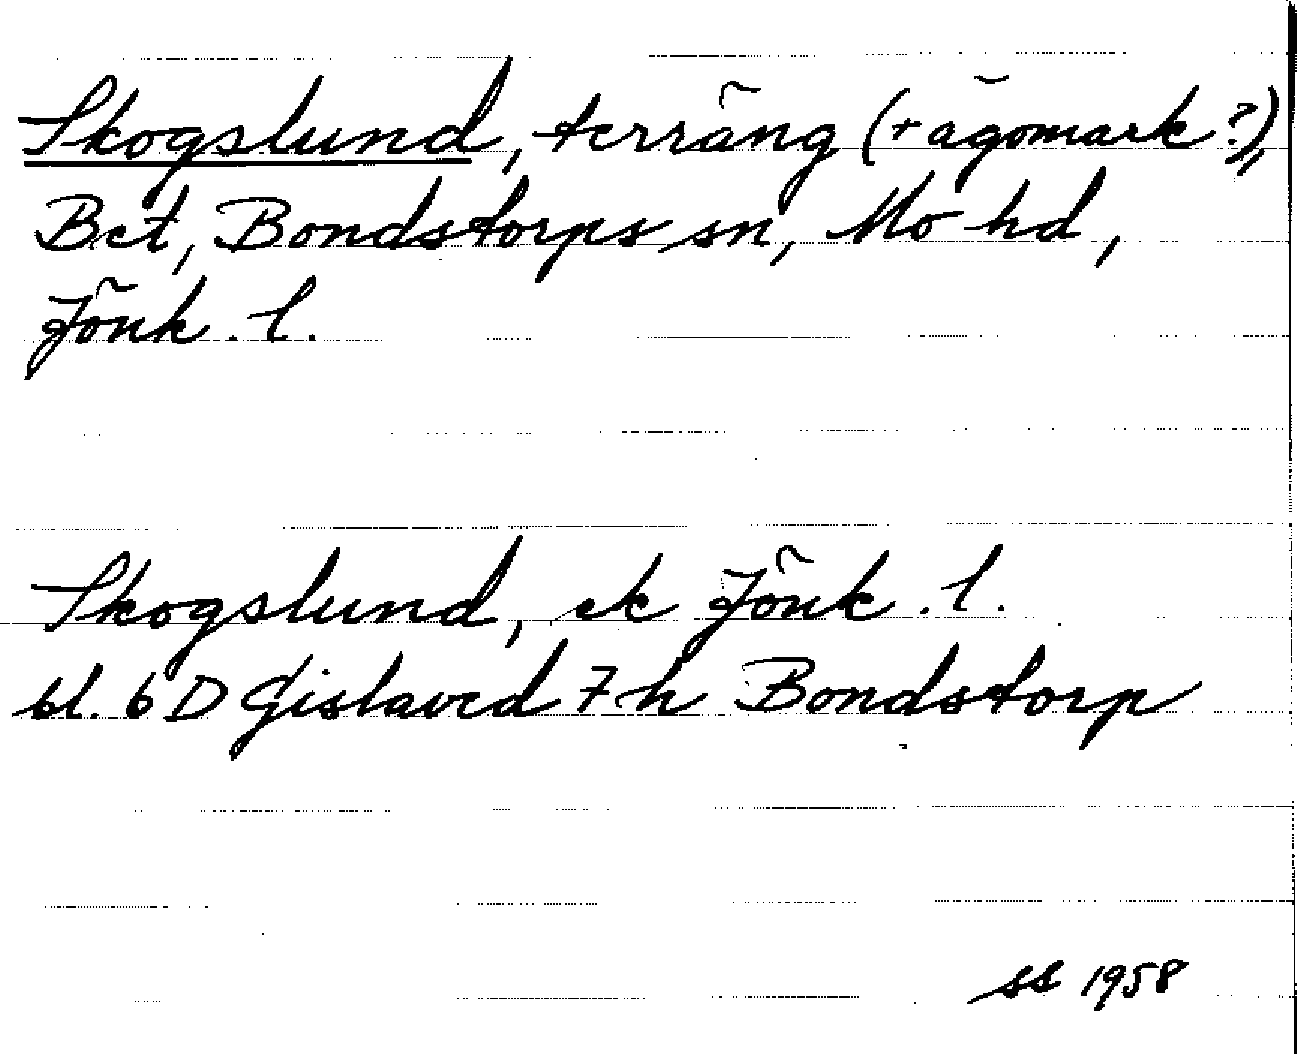 Skogslund, terräng (+ ägomark?),
Bet, Bondstorps sn, Mo hd,
Jönk. l.
Skogslund, ek Jönk. l.
bl. 6 D Gislaved 7 h Bondstorp
SS 1958